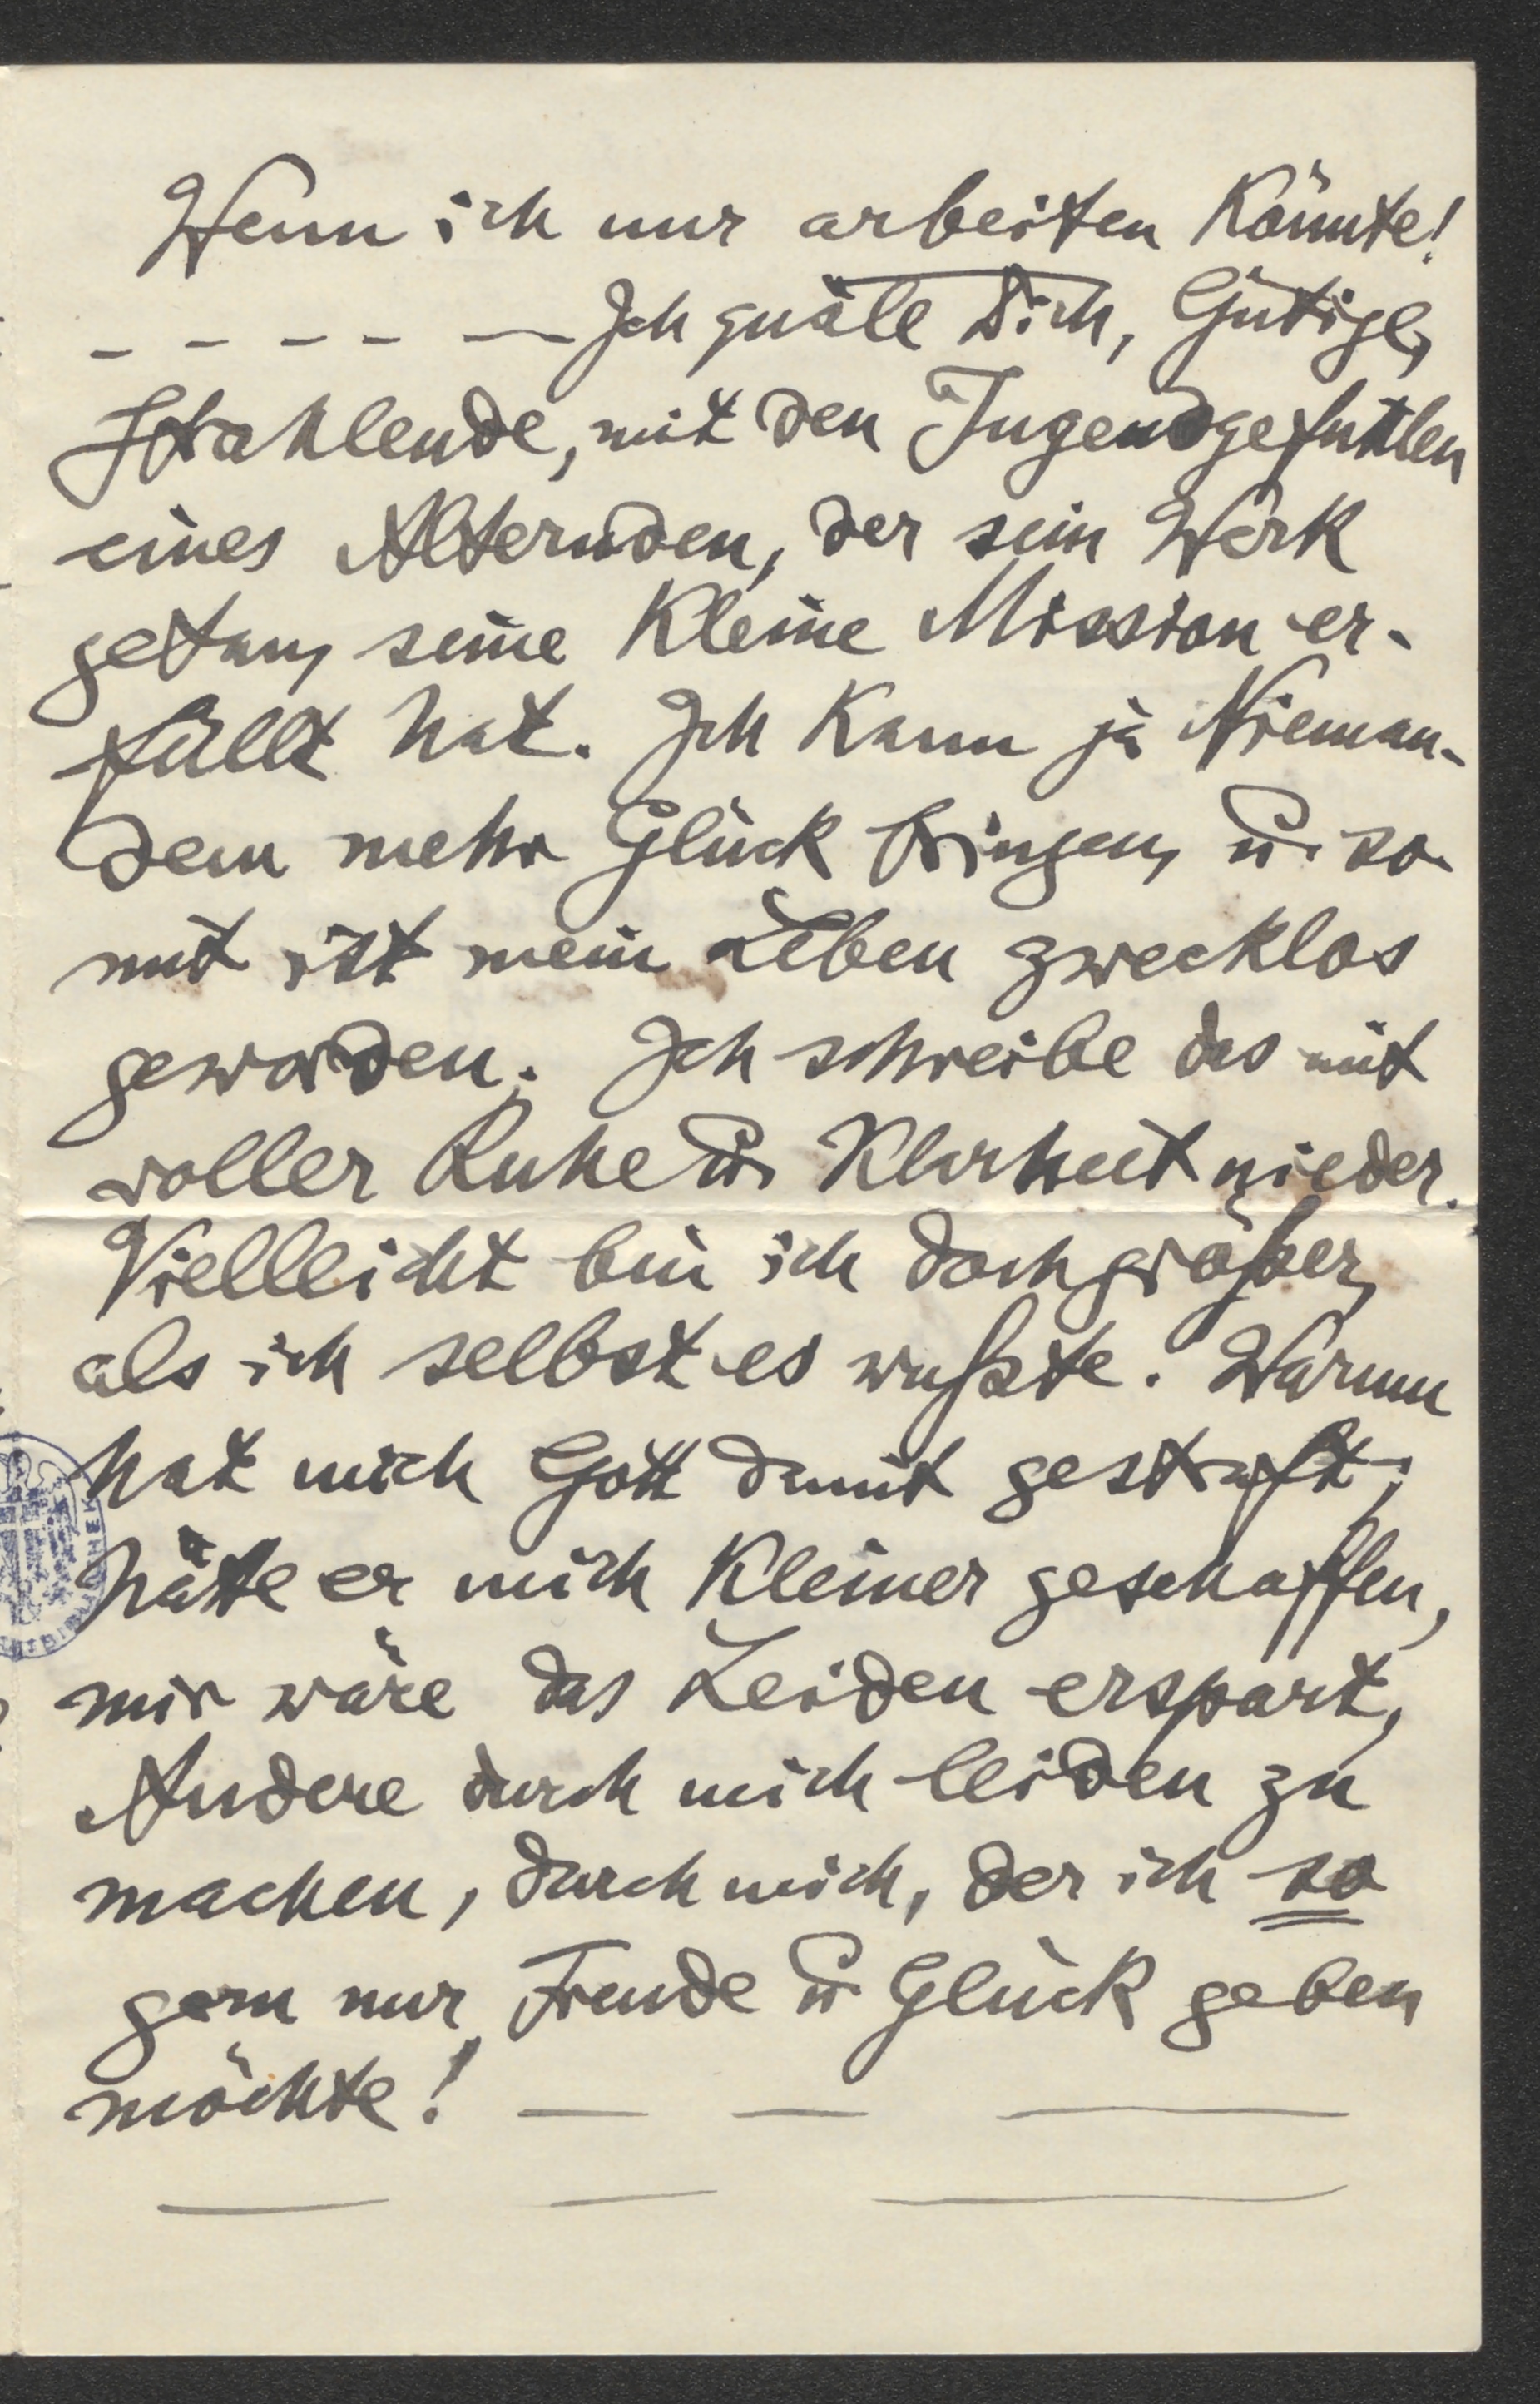 Wenn ich nur arbeiten könnte!
– – – – — Ich quäle Dich, Gütige,
Strahlende, mit den Jugendgefühlen
eines Alternden, der sein Werk
getan, seine kleine Mission er-
füllt hat. Ich kann ja Nieman-
dem mehr Glück bringen, u. so-
mit ist mein Leben zwecklos
geworden. Ich schreibe das mit
voller Ruhe u. Klarheit nieder.
Vielleicht bin ich doch größer,
als ich selbst es wußte. Warum
hat mich Gott damit gestraft;
hätte er mich kleiner geschaffen,
mir wäre das Leiden erspart,
Andere durch mich leiden zu
machen, durch mich, der ich so
gern nur Freude u. Glück geben
möchte! — — —
— — —